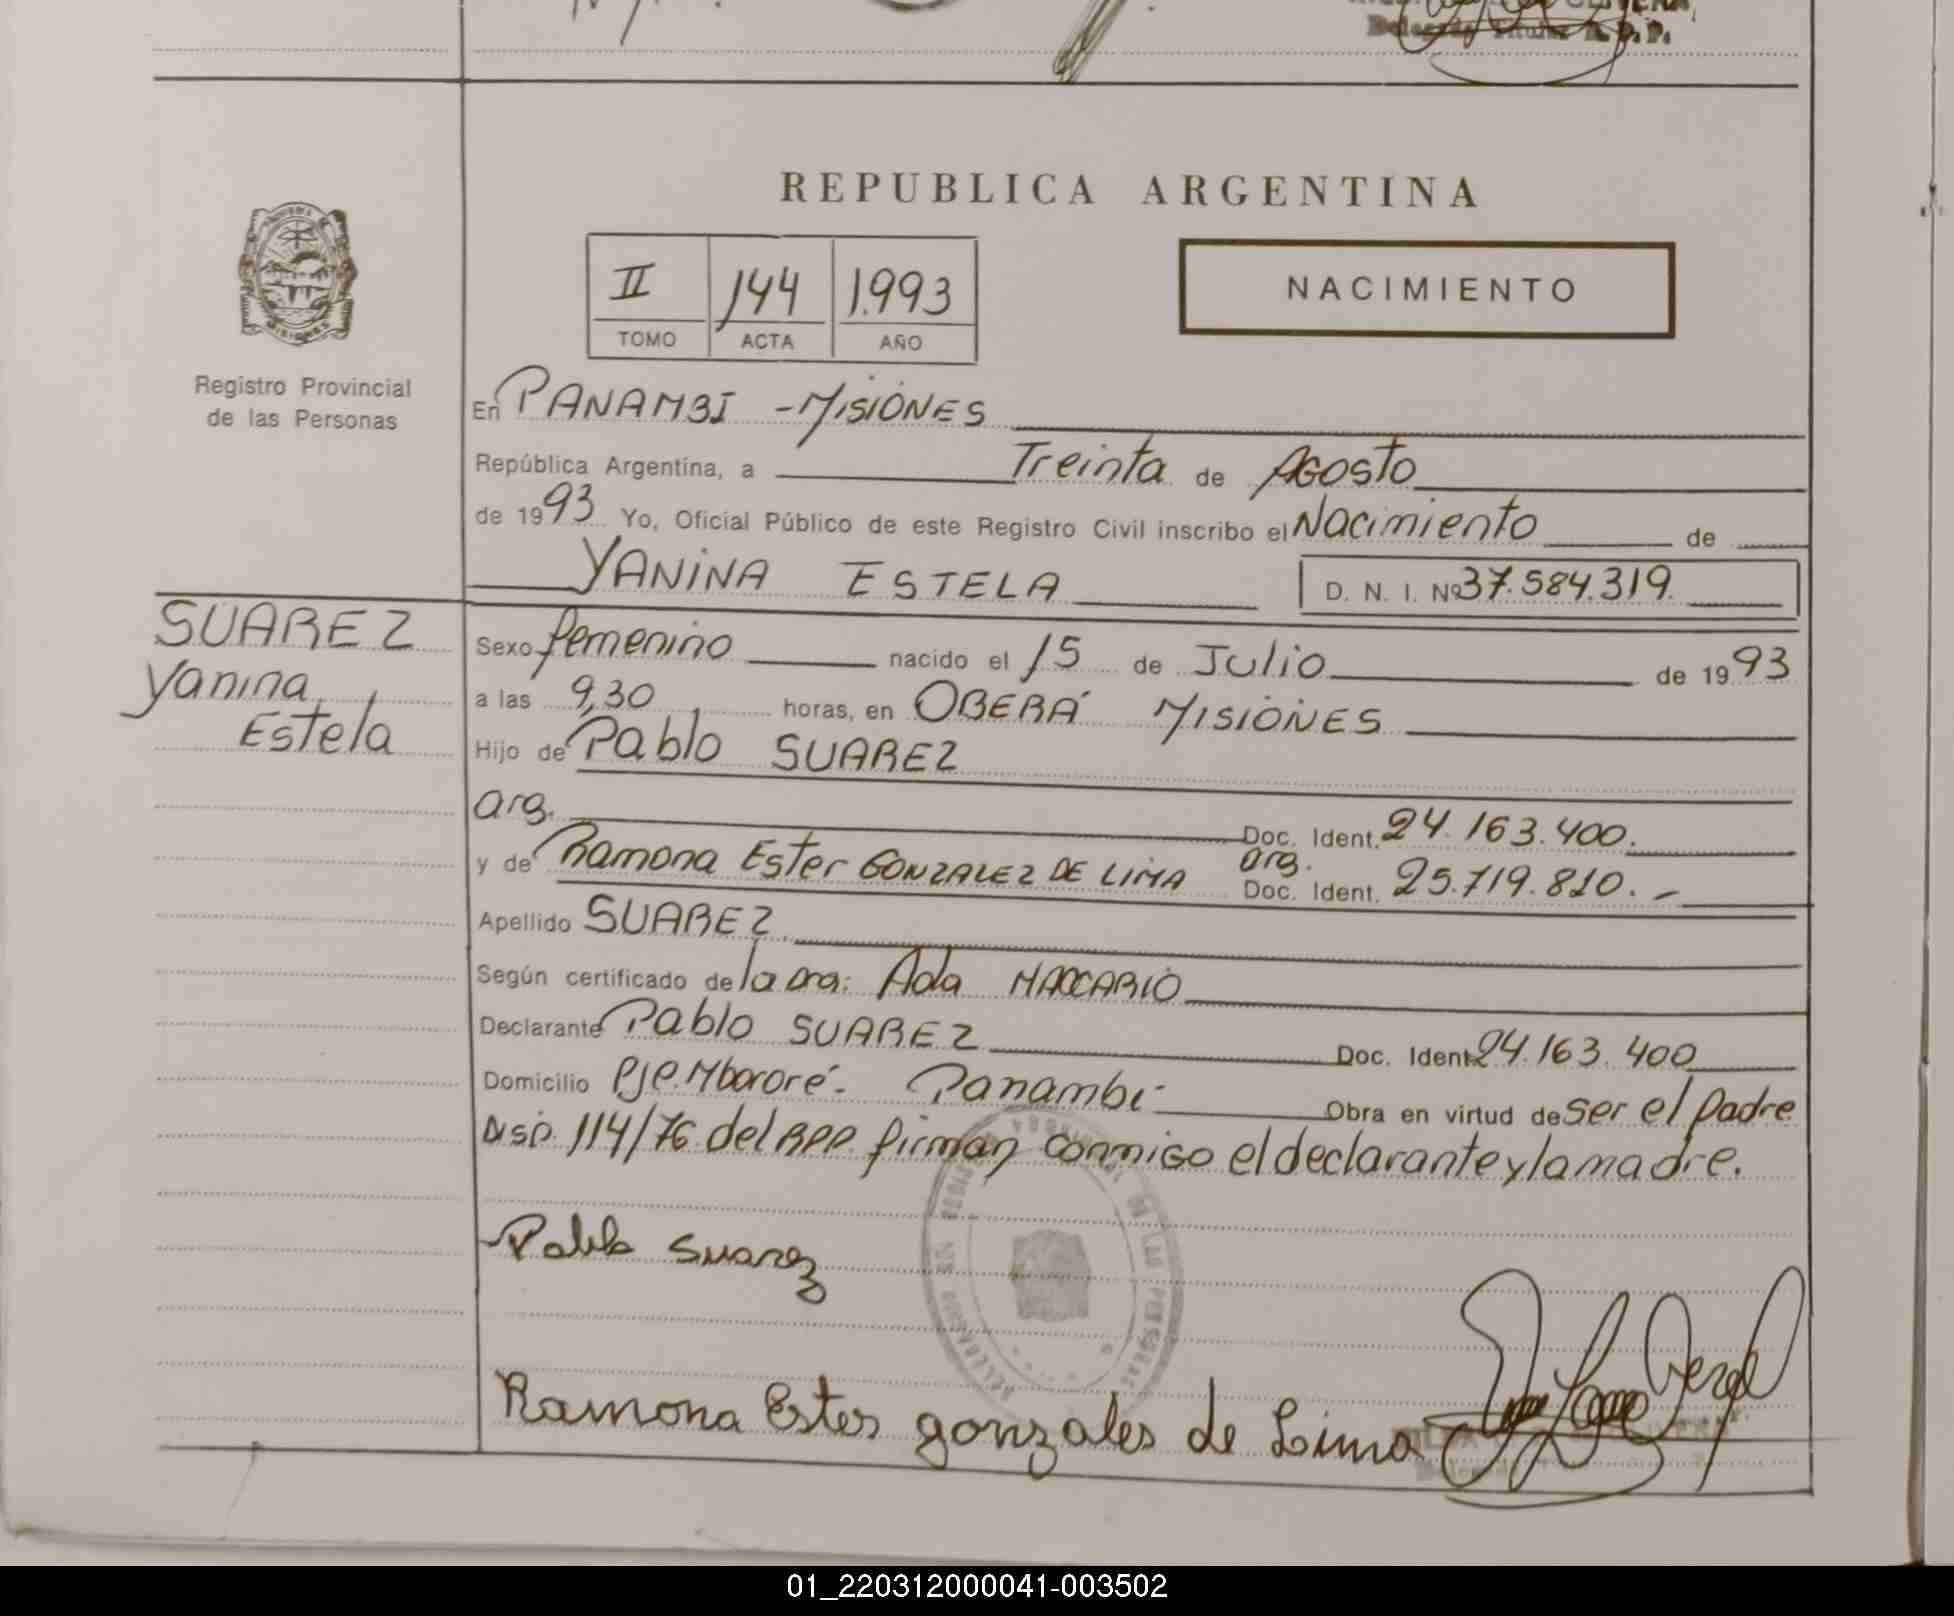 Delegado Titular R. P. P.
REPUBLICA ARGENTINA
II 144 1.993
TOMO ACTA AÑO
NACIMIENTO
Registro Provincial
de las Personas
En PANAMBI - MISIONES
República Argentina, a Treinta de AGOSTO
de 1993 Yo, Oficial Público de este Registro Civil inscribo el Nacimiento de
YANINA ESTELA D. N. I. Nº 37.584.319.
SUAREZ
Yanina
Estela
Sexo femenino nacido el 15 de Julio de 1993
a las 9,30 horas, en OBERÁ MISIONES
Hijo de Pablo SUAREZ
arg. Doc. Ident. 24.163.400.
y de Ramona Ester GONZALEZ DE LIMA arg. Doc. Ident. 25.719.810.-
Apellido SUAREZ
Según certificado de la Dra: Ada MACCARIO
Declarante Pablo SUAREZ Doc. Ident. 24.163.400
Domicilio Pje. Mbororé - Panambi - Obra en virtud de ser el padre
Disp. 114/76 del RPP. firman conmigo el declarante y la madre.
Pablo Suarez
Ramona Ester gonzales de Lima
01_220312000041-003502